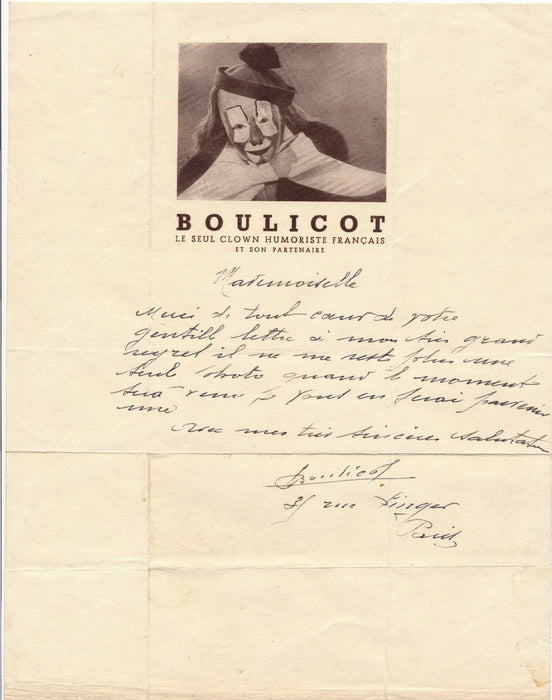 BOULICOT
LE SEUL CLOWN HUMORISTE FRANÇAIS
ET SON PARTENAIRE
Mademoiselle
Merci de tout cœur de votre
gentille lettre à mon très grand
regret il ne me reste plus une
seule photo quand le moment
sera venu je vous en ferai parvenir
une
Avec mes très sincères salutations
Boulicot
rue Singer
Paris